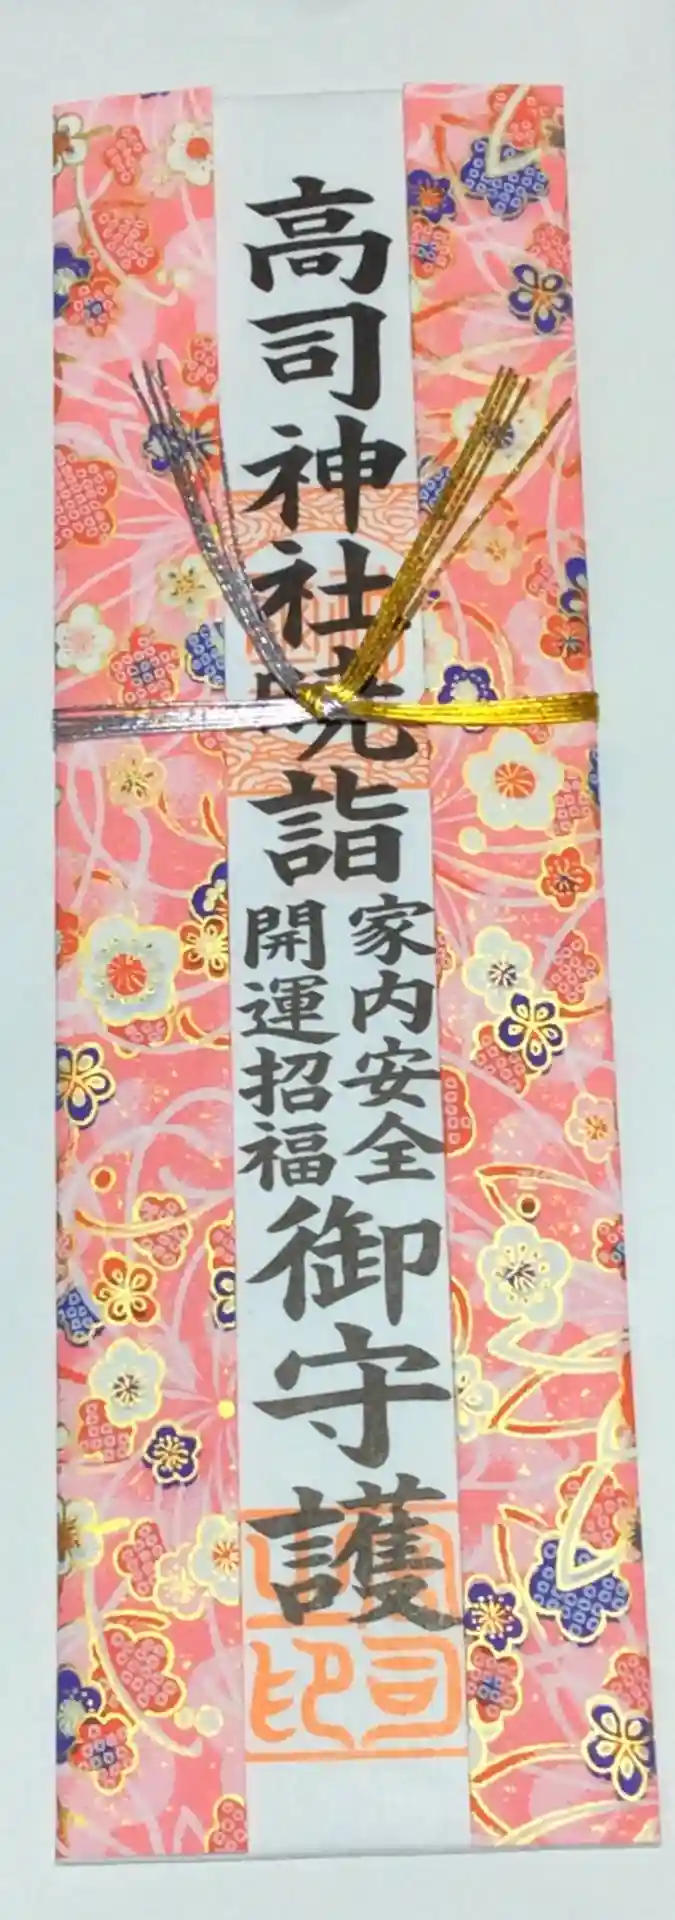 高司神社暁詣
家内安全
開運招福
御守護